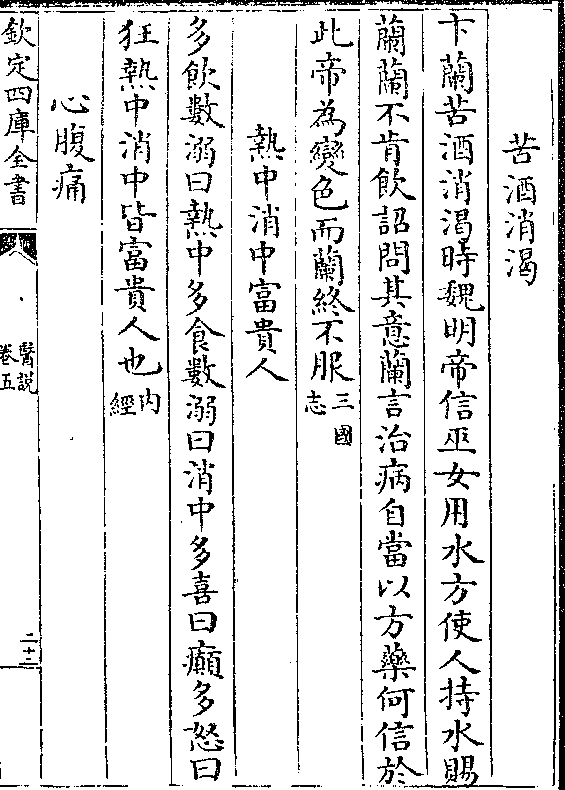 苦酒消渴
卞蘭苦酒消渴時魏明帝信巫女用水方使人持水賜
蘭蘭不肯飲詔問其意蘭言治病自當以方藥何信於
此帝為變色而蘭終不服三國志
熱中消中富貴人
多飲數溺曰熱中多食數溺曰消中多喜曰癲多怒曰
狂熱中消中皆富貴人也內經
心腹痛
欽定四庫全書
醫説
卷五
二十三